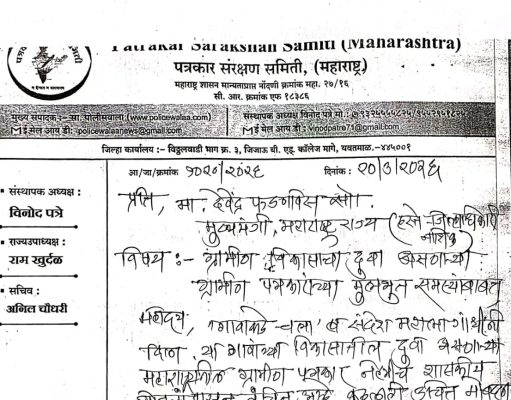 Patrakar Sarakshan Samiti (Maharashtra)
पत्रकार संरक्षण समिती, (महाराष्ट्र)
महाराष्ट्र शासन मान्यताप्राप्त नोंदणी क्रमांक महा. २७/१६
सी. आर. क्रमांक एफ १८३८६
मुख्य संपादक :- आ. पोलीसवाला (www.policewalaa.com)
संस्थापक अध्यक्ष विनोद पत्रे मो.:
ई मेल आय डी: policewalaanews@gmail.com
ई मेल आय डी: Vinodpatre71@gmail.com
जिल्हा कार्यालय :- विठ्ठलवाडी भाग क्र. ३, जिजाऊ बी. एड्. कॉलेज मागे, यवतमाळ.-४४५००१
आ/जा/क्रमांक २०२०/२०२६ दिनांक: २०/३/२०२६
संस्थापक अध्यक्ष :
विनोद पत्रे
राज्यउपाध्यक्ष :
राम खुर्दळ
सचिव :
अनिल चौधरी
प्रति, मा. देवेंद्र फडणविस सो.
मुख्यमंत्री, महाराष्ट्र राज्य (हस्ते-जिल्हाधिकारी
नाशिक)
विषय :- ग्रामीण विकासाचा दुवा असणाऱ्या
ग्रामीण पत्रकारांच्या मुलभुत समस्यांबाबत
महोदय, गावाकडे-चला हा संदेश महात्मा गांधींनी
दिला, या गावांच्या विकासातील दुवा असणाऱ्या
महाराष्ट्रातील ग्रामीण पत्रकार नेहमीच शासकीय